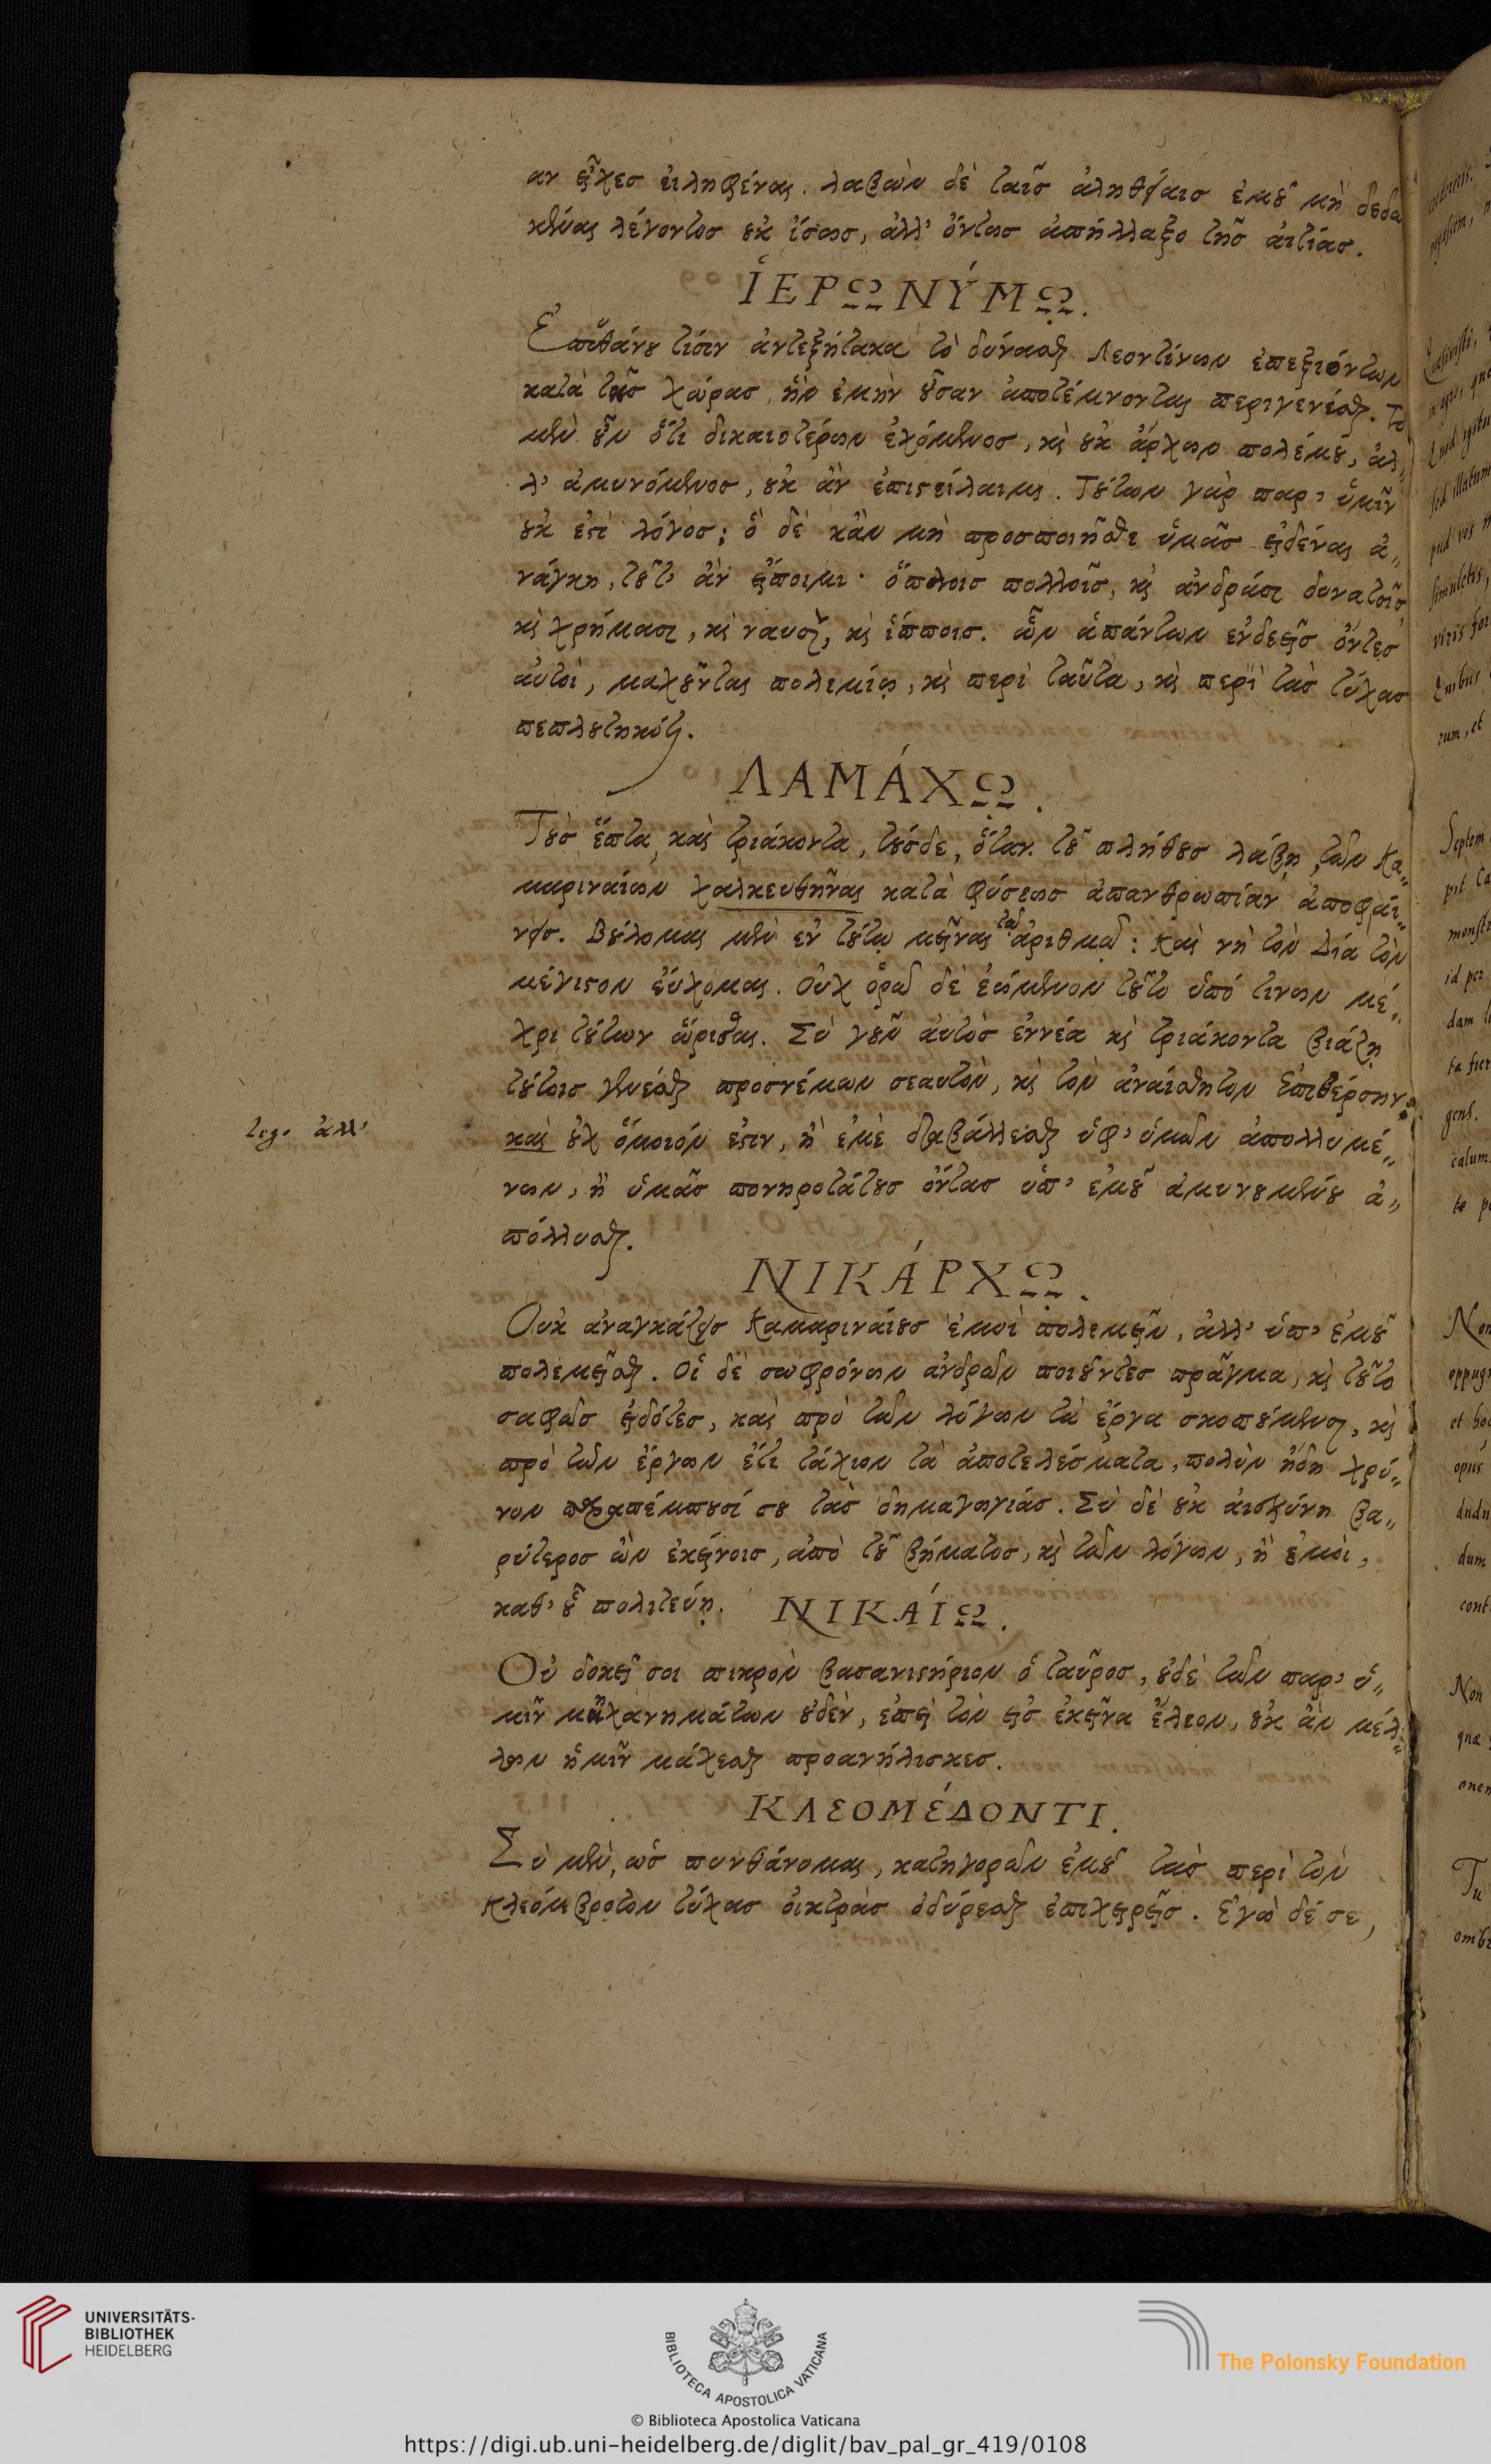 αν εἶχεσ εἰληφέναι. λαβὼν δὲ ταῖσ ἀληθείαισ ἐμοῦ μὴ δεδω
κέναι λέγοντοσ οὐκ ἴσωσ, ἀλλ' ὄντωσ ἀπήλλαξο τῆσ αἰτίασ.
ἹΕΡΩΝΎΜΩ.
Επυθάνου τίσιν ἀντεξήτακα τὸ δύνασθαι Λεοντίνων ἐπεξιόντων
κατὰ τῆσ χώρασ, ἣν ἐμὴν οὖσαν ἀποτέμνονται περιγενέσθαι. Το
μὲν οὖν ὅτι δικαιοτέρων ἐχόμενοσ, καὶ οὐκ ἄρχων πολέμου, ἀλ„
λ' ἀμυνόμενοσ, οὐκ ἂν ἐπιστείλαιμι. Τούτων γὰρ παρ' ὑμῖν
οὐκ ἐστὶ λόγοσ: ὃ δὲ κἂν μὴ προσποιῆσθε ὑμᾶσ εἰδέναι ἀ„
νάγκη, τοῦτ' ἂν εἴποιμι· ὅπλοισ πολλοῖσ, καὶ ἀνδράσι δυνατοῖσ
καὶ χρήμασι, καὶ ναυσὶ, καὶ ἵπποισ. ὧν ἁπάντων ἐνδεεῖσ ὄντεσ
αὐτοὶ, μαχοῦνται πολεμίῳ, καὶ περὶ ταῦτα, καὶ περὶ τὰσ τύχασ
πεπλουτηκότι.
ΛΑΜΆΧΩ.
Τοὺσ ἕπτα, καὶ τριάκοντα, τούσδε, ὅταν τοῦ πλήθουσ λάβῃ, τῶν Κα„
μαριναίων χαλκευθῆναι κατὰ φύσεωσ ἀπανθρωπίαν ἀποφαί„
νεισ. Βούλομαι μὲν ἐν τούτῳ μεῖναι τῷ ἀριθμῷ: καὶ νὴ τὸν Δία τὸν
μέγιστον εὔχομαι. Οὐχ ὁρῶ δὲ ἑώμενον τοῦτο ὑπό τινων μέ„
χρι τούτων ὥρισθαι. Σὺ γοῦν αὐτὸσ ἐννέα καὶ τριάκοντα βιάζῃ
τούτοισ γενέσθαι προσνέμων σεαυτὸν, καὶ τὸν ἀναίσθητον Ἐπιθέρσην
leg. ἀλλ'
καὶ οὐχ ὅμοιόν ἐστιν, ἢ ἐμὲ διαβάλλεσθαι ὑφ' ὑμῶν ἀπολλυμέ„
νων, ἢ ὑμᾶσ πονηροτάτουσ ὄντασ ὑπ' ἐμοῦ ἀμυνουμένου ἀ„
πόλλυσθαι.
ΝΙΚΆΡΧΩ.
Οὐκ ἀναγκάζεισ Καμαριναίουσ ἐμοὶ πολεμεῖν, ἀλλ' ὑπ' ἐμοῦ
πολεμεῖσθαι. Οἱ δὲ σωφρόνων ἀνδρῶν ποιοῦντεσ πρᾶγμα, καὶ τοῦτο
σαφῶσ εἰδότεσ, καὶ πρὸ τῶν λόγων τὰ ἔργα σκοπούμενοι, καὶ
πρὸ τῶν ἔργων ἔτι τάχιον τὰ ἀποτελέσματα, πολὺν ἤδη χρό„
νον παραπέμπουσί σου τὰσ δημαγωγιάσ. Σὺ δὲ οὐκ αἰσχύνη βα„
ρύτεροσ ὢν ἐκείνοισ, ἀπὸ τοῦ βήματοσ, καὶ τῶν λόγων, ἢ ἐμοὶ,
καθ' οὗ πολιτεύῃ. ΝΙΚΑΊΩ.
Οὐ δοκεῖ σοι πικρὸν βασανιστήριον ὁ ταῦροσ, οὐδὲ τῶν παρ' ὑ„
μῖν μηχανημάτων οὐδὲν, ἐπεὶ τὸν εἰσ ἐκεῖνα ἔλεον, οὐκ ἂν μέλ„
λων ἡμῖν μάχεσθαι προανήλισκεσ.
ΚΛΕΟΜΈΔΟΝΤΙ.
Σὺ μὲν, ὡσ πυνθάνομαι, κατηγορῶν ἐμοῦ τὰσ περὶ τὸν
Κλεόμβροτον τύχασ οἰκτρὰσ ὀδύρεσθαι ἐπιχειρεῖσ. Ἐγὼ δέ σε,
UNIVERSITÄTS-
BIBLIOTHEK
HEIDELBERG
BIBLIOTECA APOSTOLICA VATICANA
The Polonsky Foundation
© Biblioteca Apostolica Vaticana
https://digi.ub.uni-heidelberg.de/diglit/bav_pal_gr_419/0108